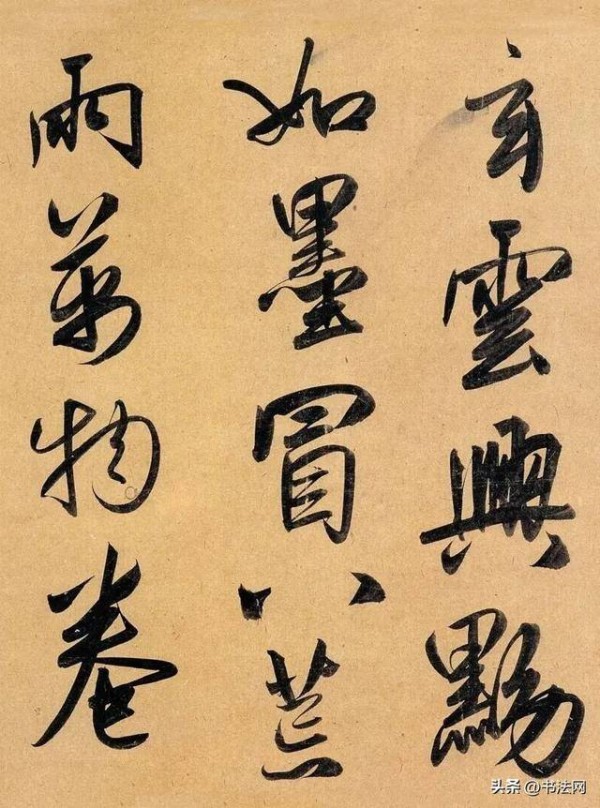 玄雲興黝
如墨冒八荒
雨萬物卷
头条 @书法网